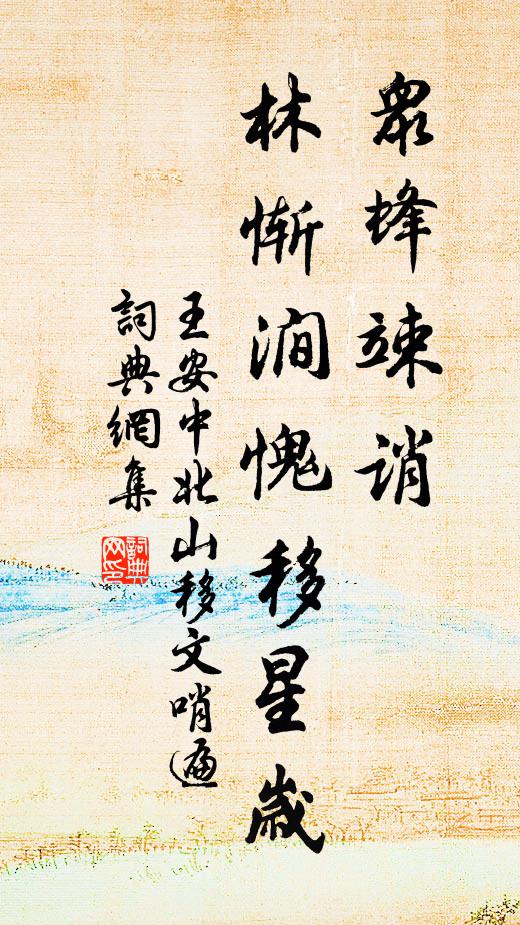 眾蜂竦誚
林慚澗愧移星歲
王安中北山移文哨遍
詞典網集
詞典
网印